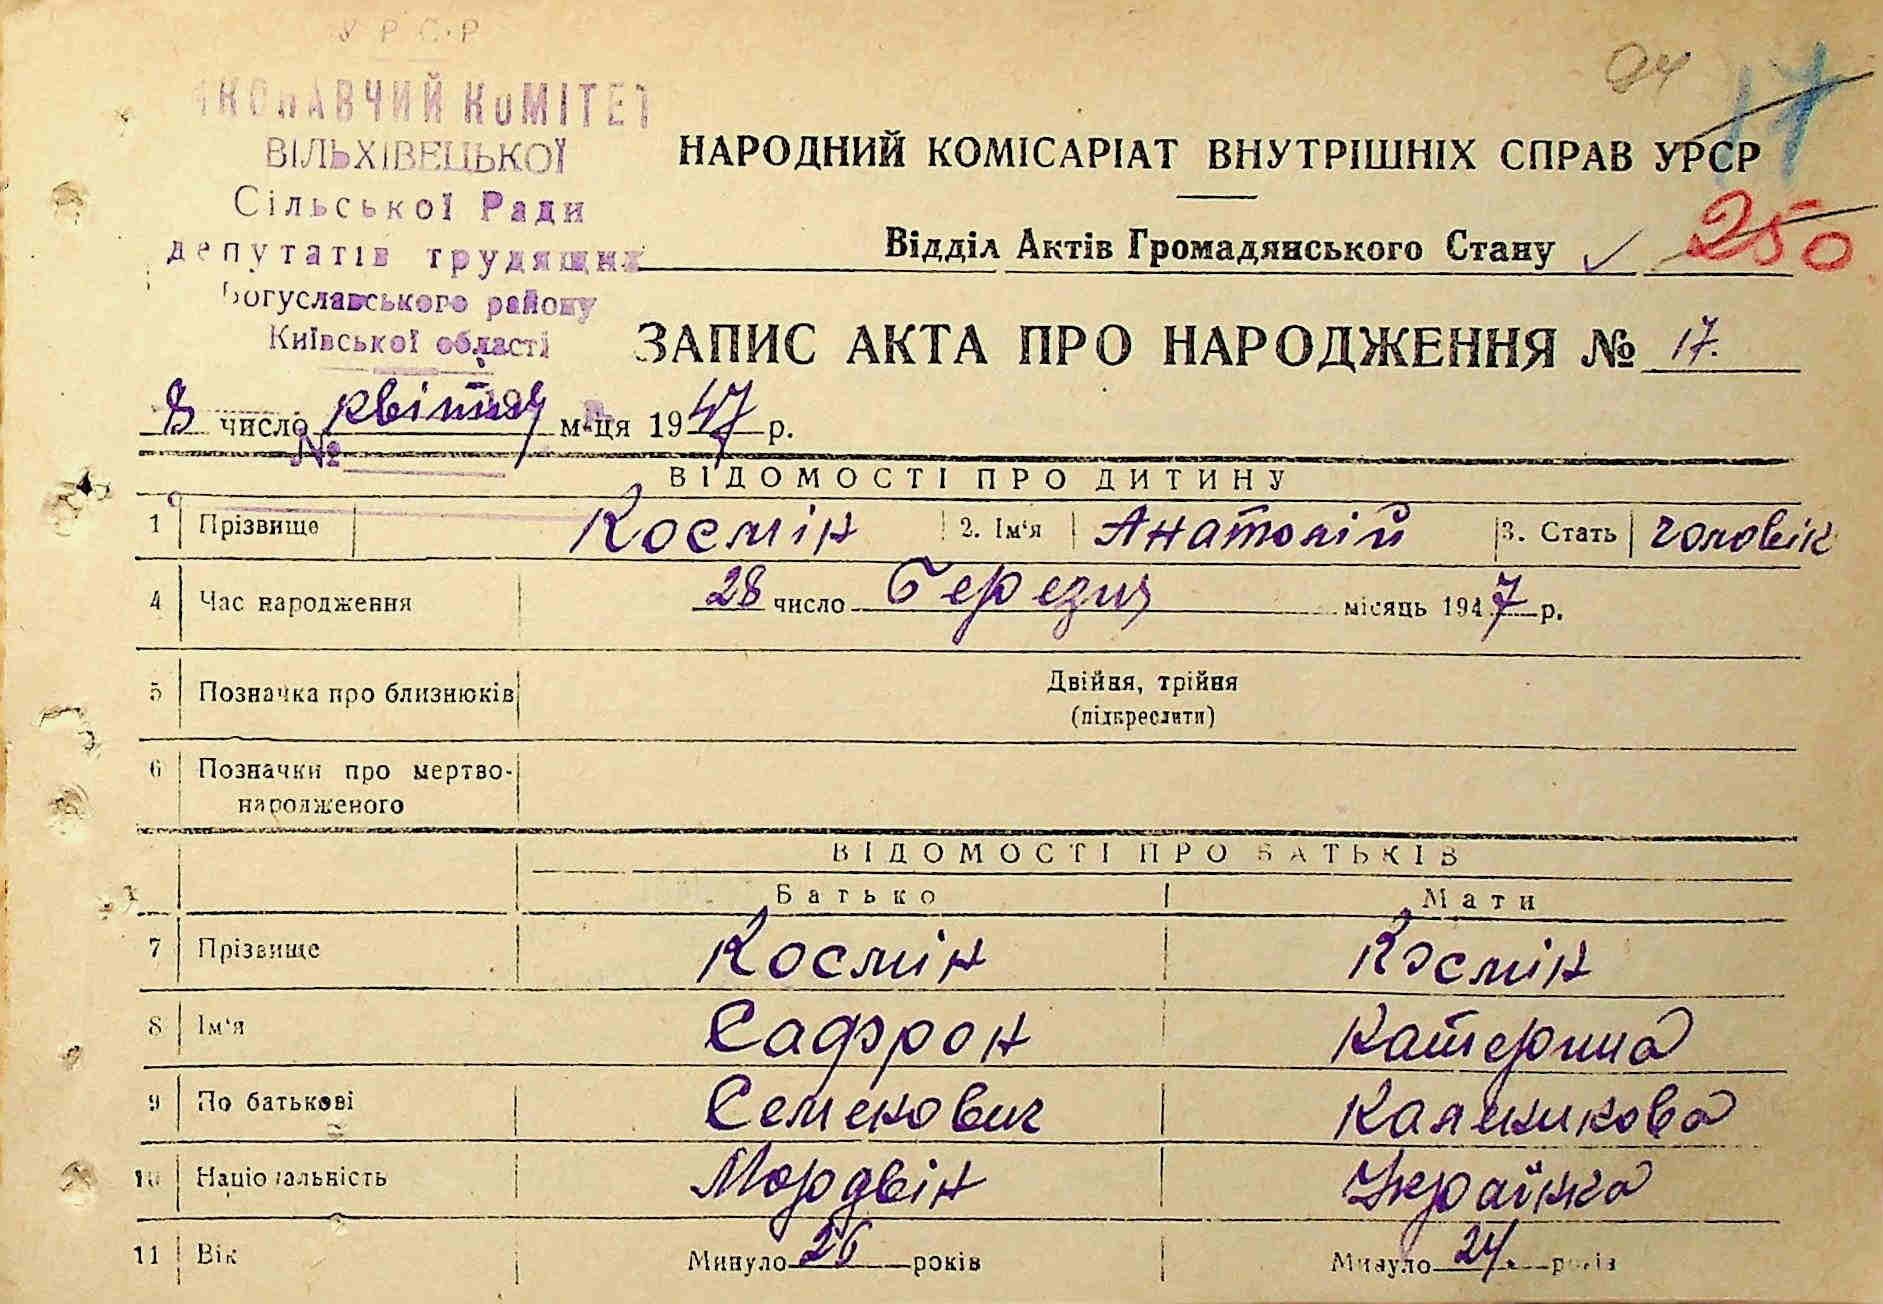 УРСР
ВИКОНАВЧИЙ КОМІТЕТ
ВІЛЬХІВЕЦЬКОЇ
Сільської Ради
депутатів трудящих
Богуславського району
Київської області
№
94
17
250
НАРОДНИЙ КОМІСАРІАТ ВНУТРІШНІХ СПРАВ УРСР
Відділ Актів Громадянського Стану
ЗАПИС АКТА ПРО НАРОДЖЕННЯ № 17.
8 число квітня м-ця 1947 р.
ВІДОМОСТІ ПРО ДИТИНУ
1 Прізвище Космін 2. Ім'я Анатолій 3. Стать чоловік
4 Час народження 28 число Березня місяць 1947 р.
5 Позначка про близнюків Двійня, трійня
(підкреслити)
6 Позначки про мертво-
народженого
ВІДОМОСТІ ПРО БАТЬКІВ
Батько Мати
7 Прізвище Космін Космін
8 Ім'я Сафрон Катерина
9 По батькові Семенович Каленикова
10 Національність Мордвін Українка
11 Вік Минуло 26 років Минуло 24. років